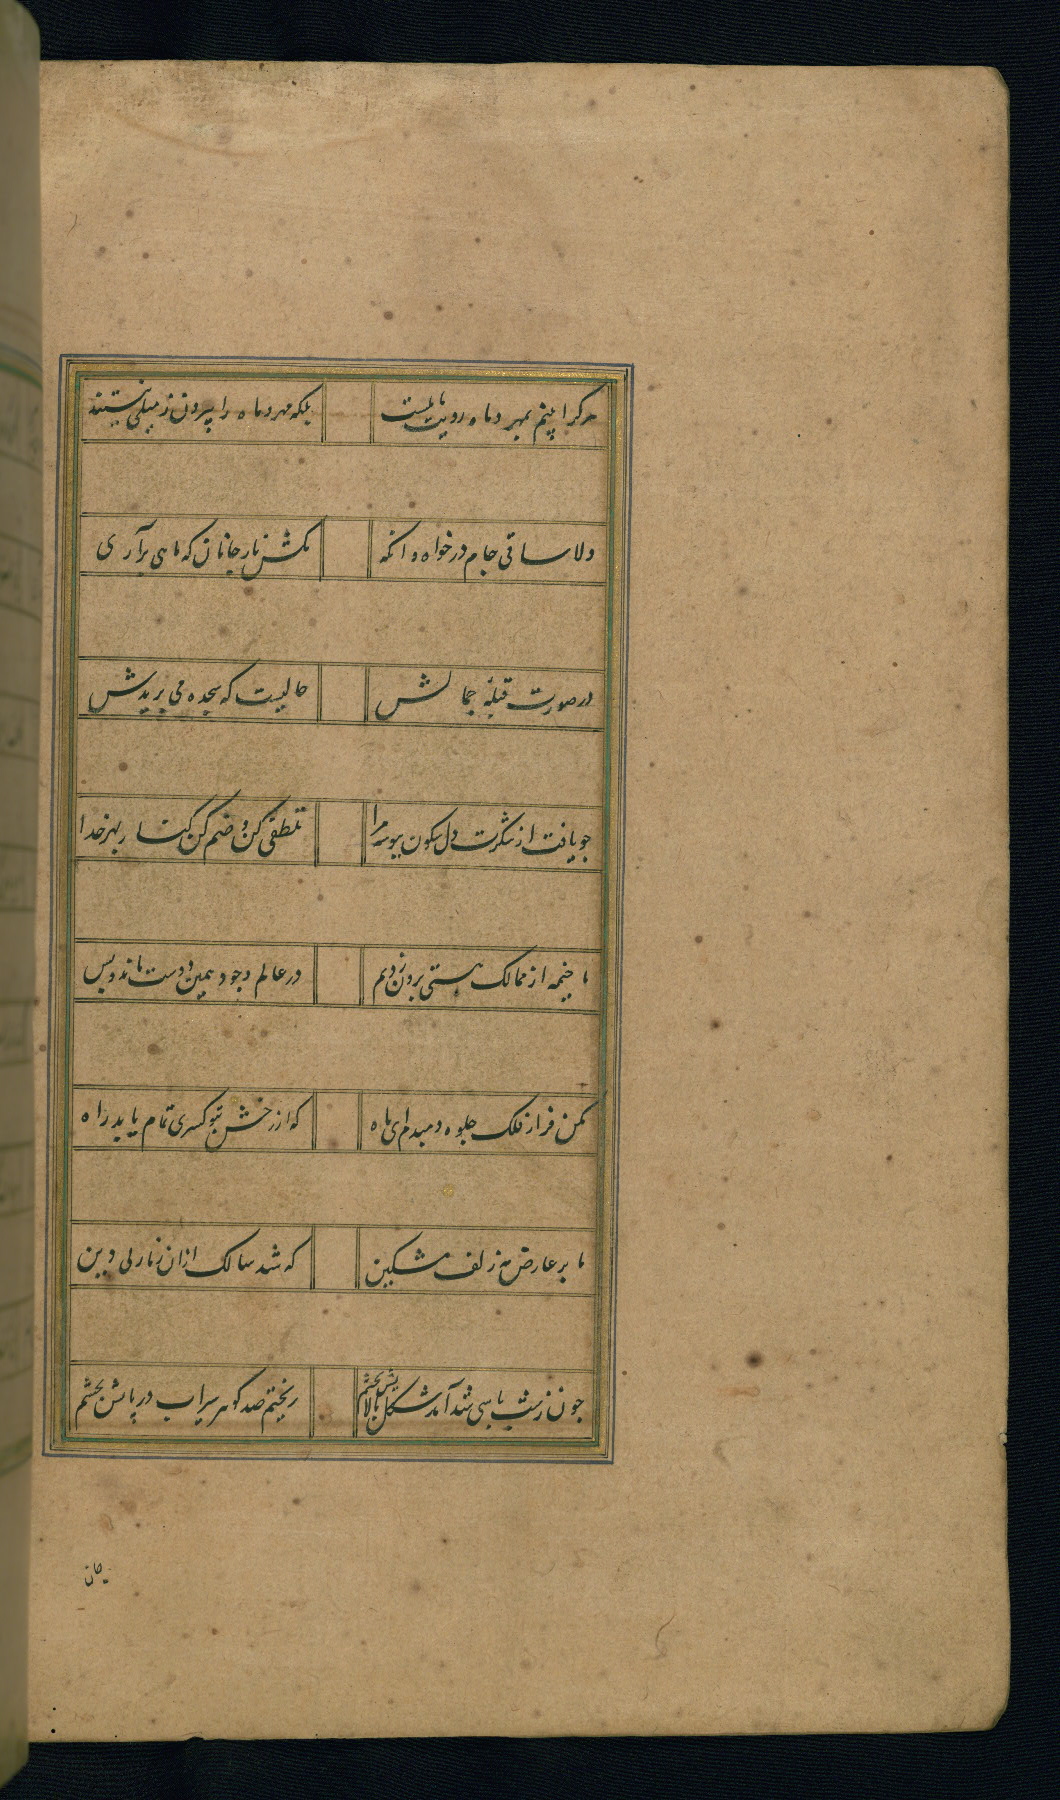 هرکرا بینم بمهر و ماه رویت مایلست بلکه مهر و ماه را بیرون ز میلی نیستند
دلا ساقی جام در خواه و انکه بکش ناز جانان که ماهی برآری
در صورت قبله جمالش حالیست که سجده می بریدش
جو یافت از شکرت دل سکون بیوسه مرا تلطفی کن و ضم کن کنار بهر خدا
ما خیمه از ممالک هستی برون زدیم در عالم وجود همین دوست ماند وبس
مکن فراز فلک جلوه دمبدم ای ماه که از رخش بتو کسری تمام یابد راه
ما بر عارض مه زلف مشکین که شد سالک ازان زنار لی دین
جون زشت با سی شد آمد شکل بالا بچشم ریختم صد کوهر سیراب در پاش بچشم